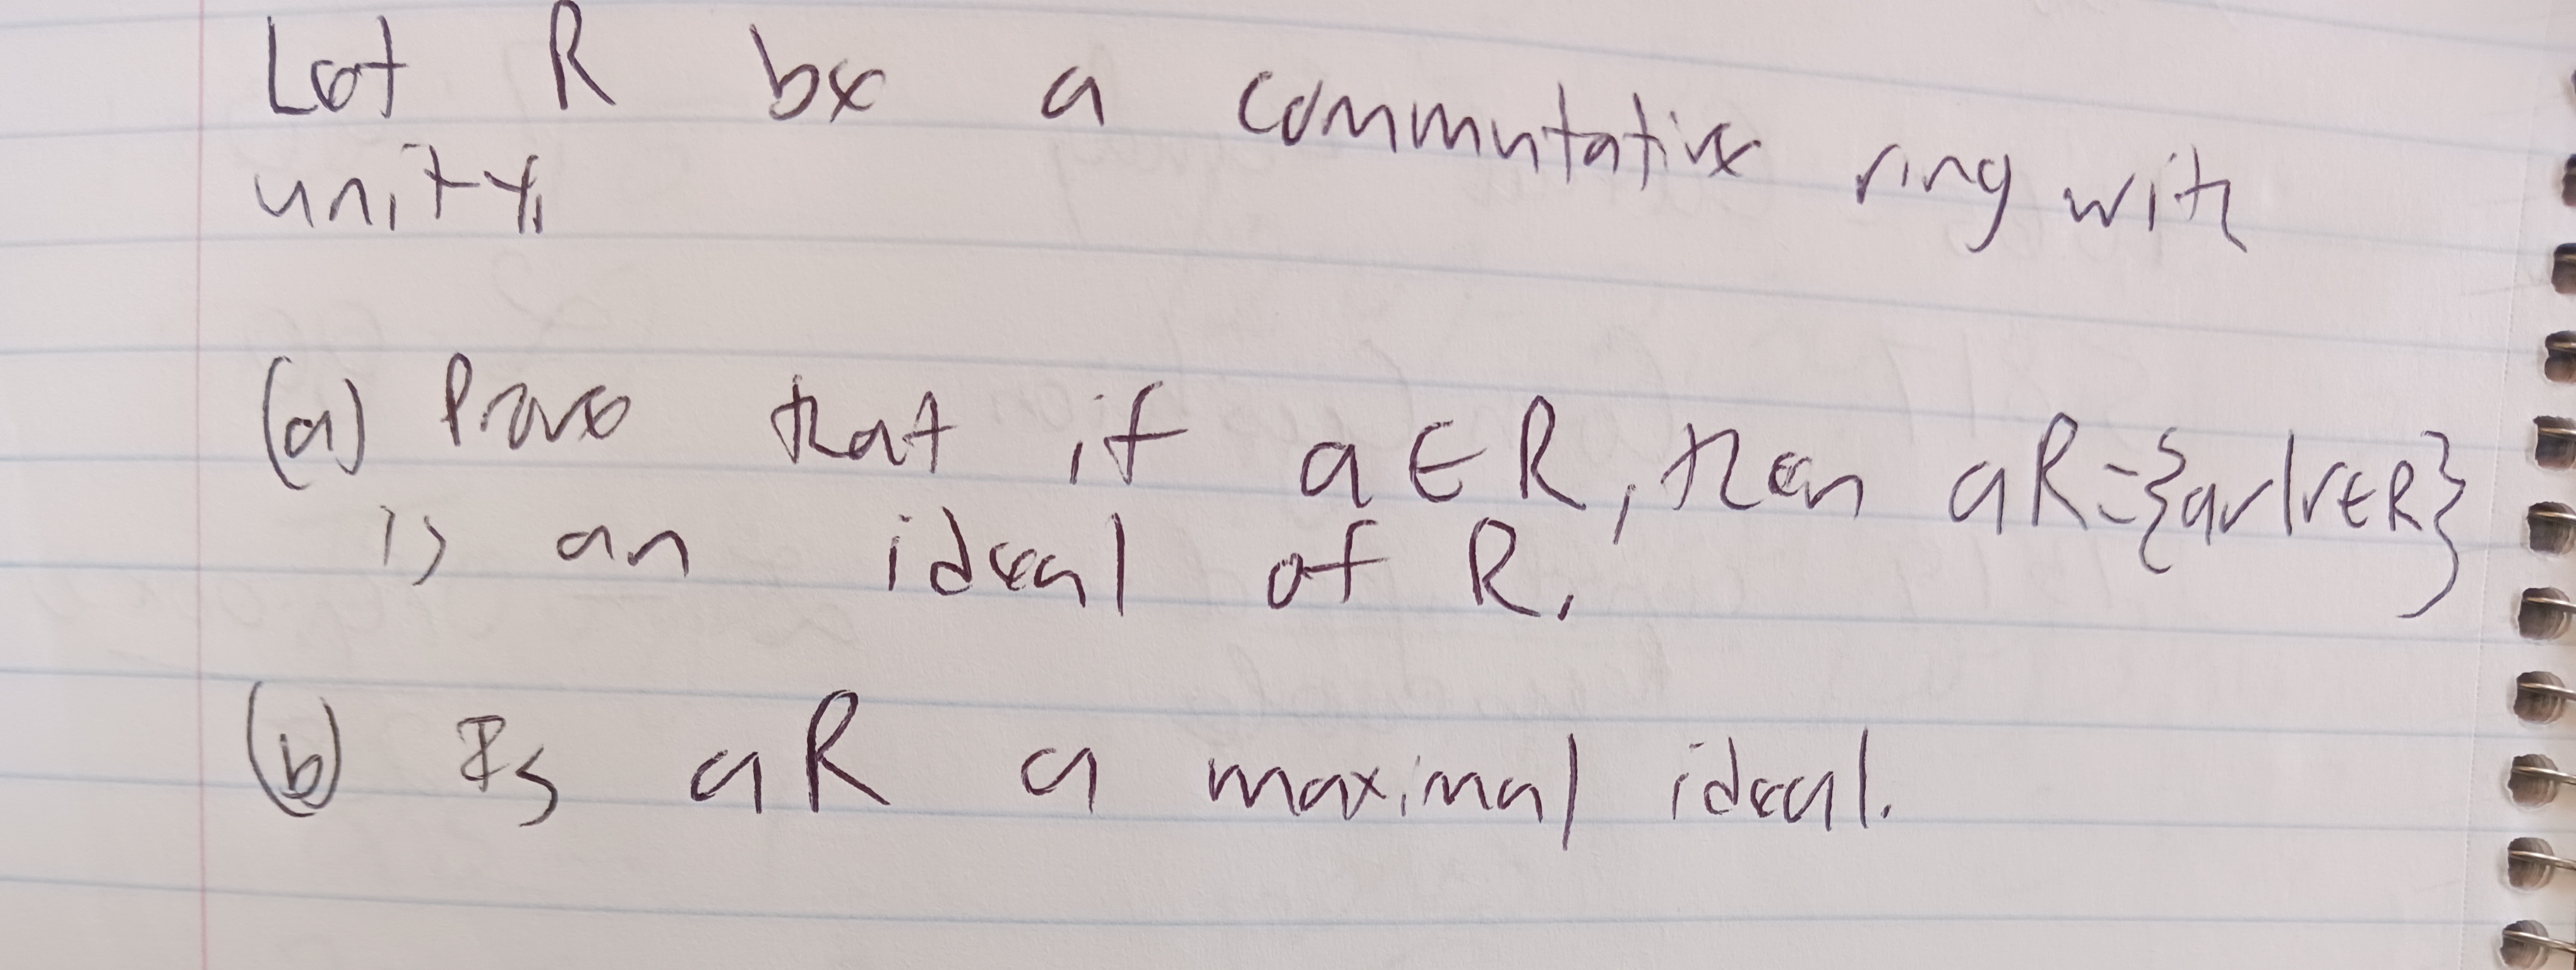 Let R be a commutative ring with
unity.
(a) Prove that if a ∈ R, then aR = {ar | r ∈ R}
is an ideal of R.
(b) Is aR a maximal ideal.